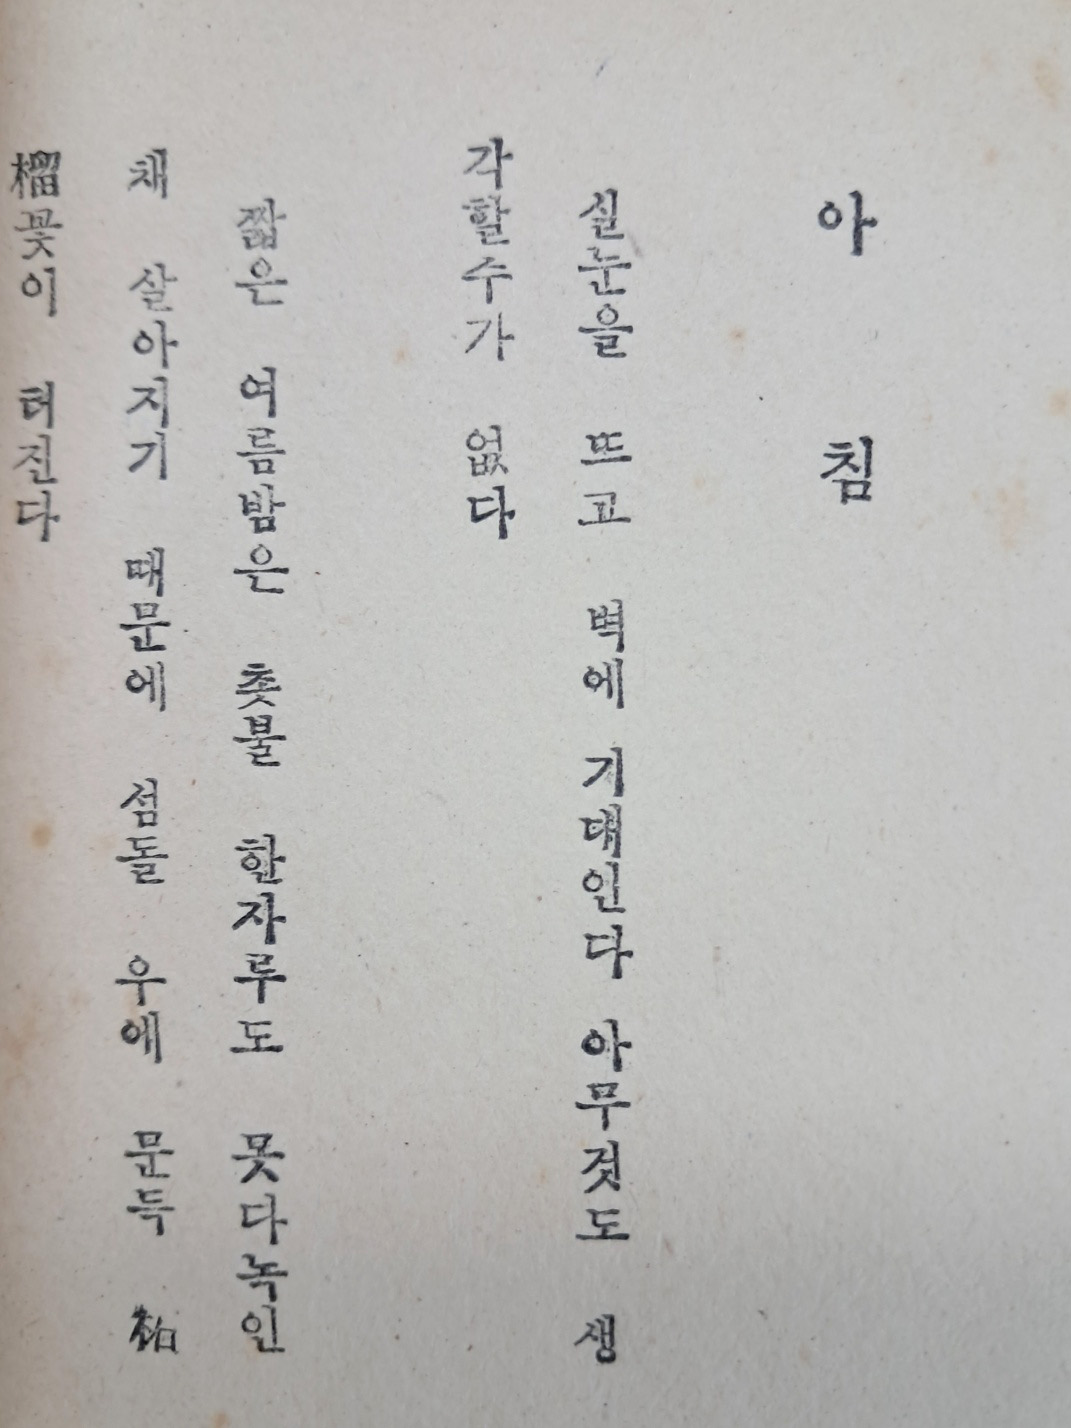 아침
실눈을 뜨고 벽에 기대인다 아무것도 생
각할수가 없다
짧은 여름밤은 촛불 한자루도 못다녹인
채 살아지기 때문에 섬돌 우에 문득 柘
榴꽃이 터진다